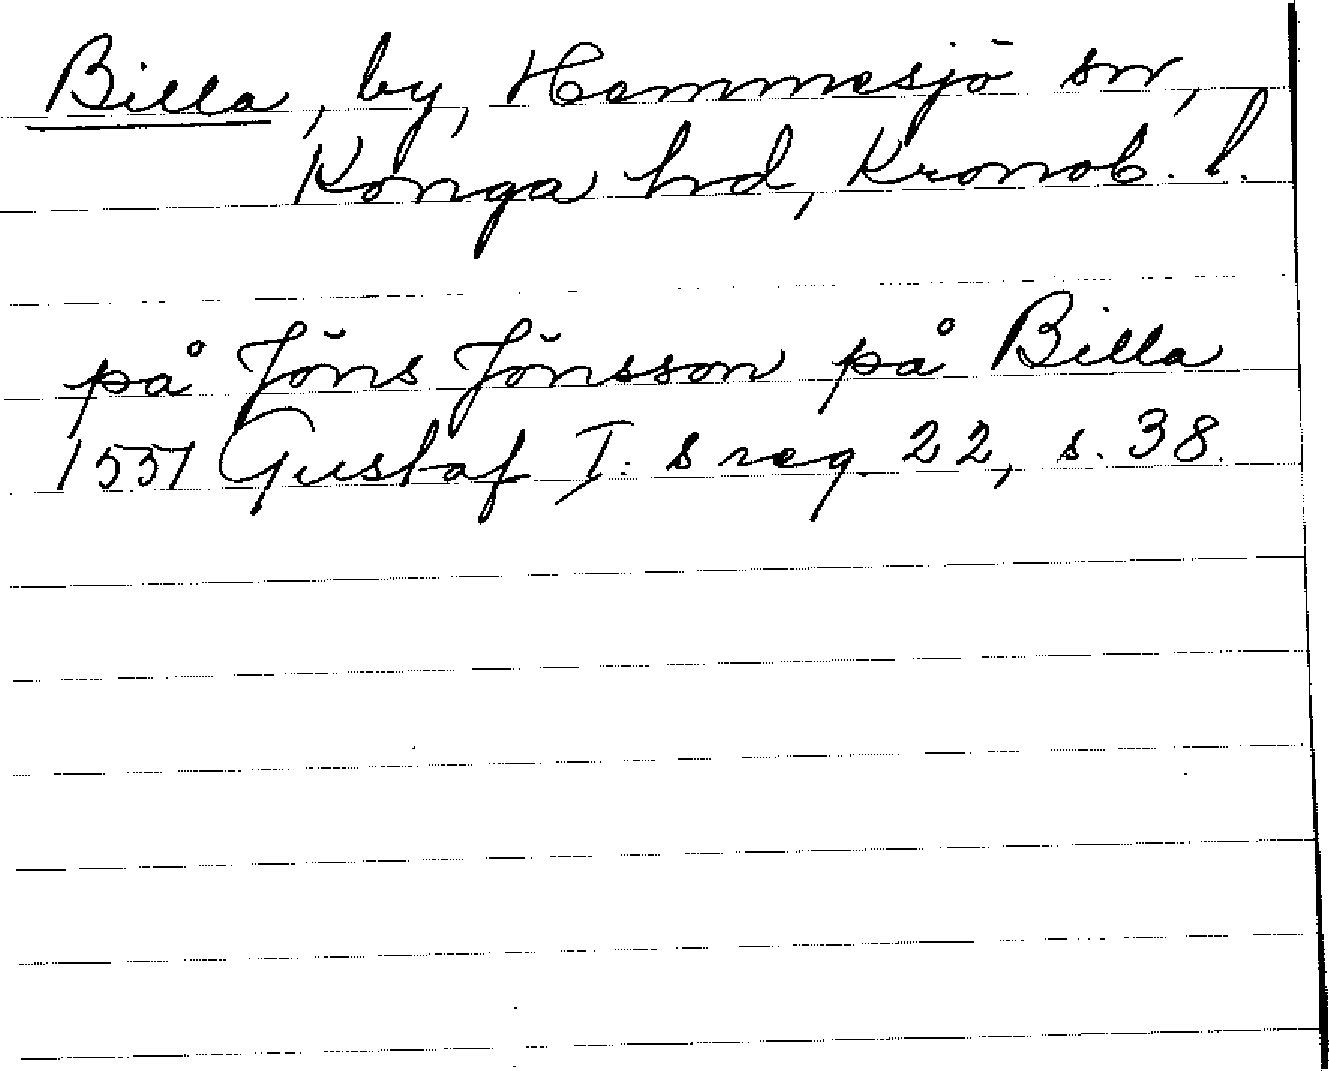 Billa, by, Hemmesjö sn,
Konga hd, Kronob. l.
på Jöns Jönsson på Billa
1551 Gustaf I:s reg 22, s. 38.